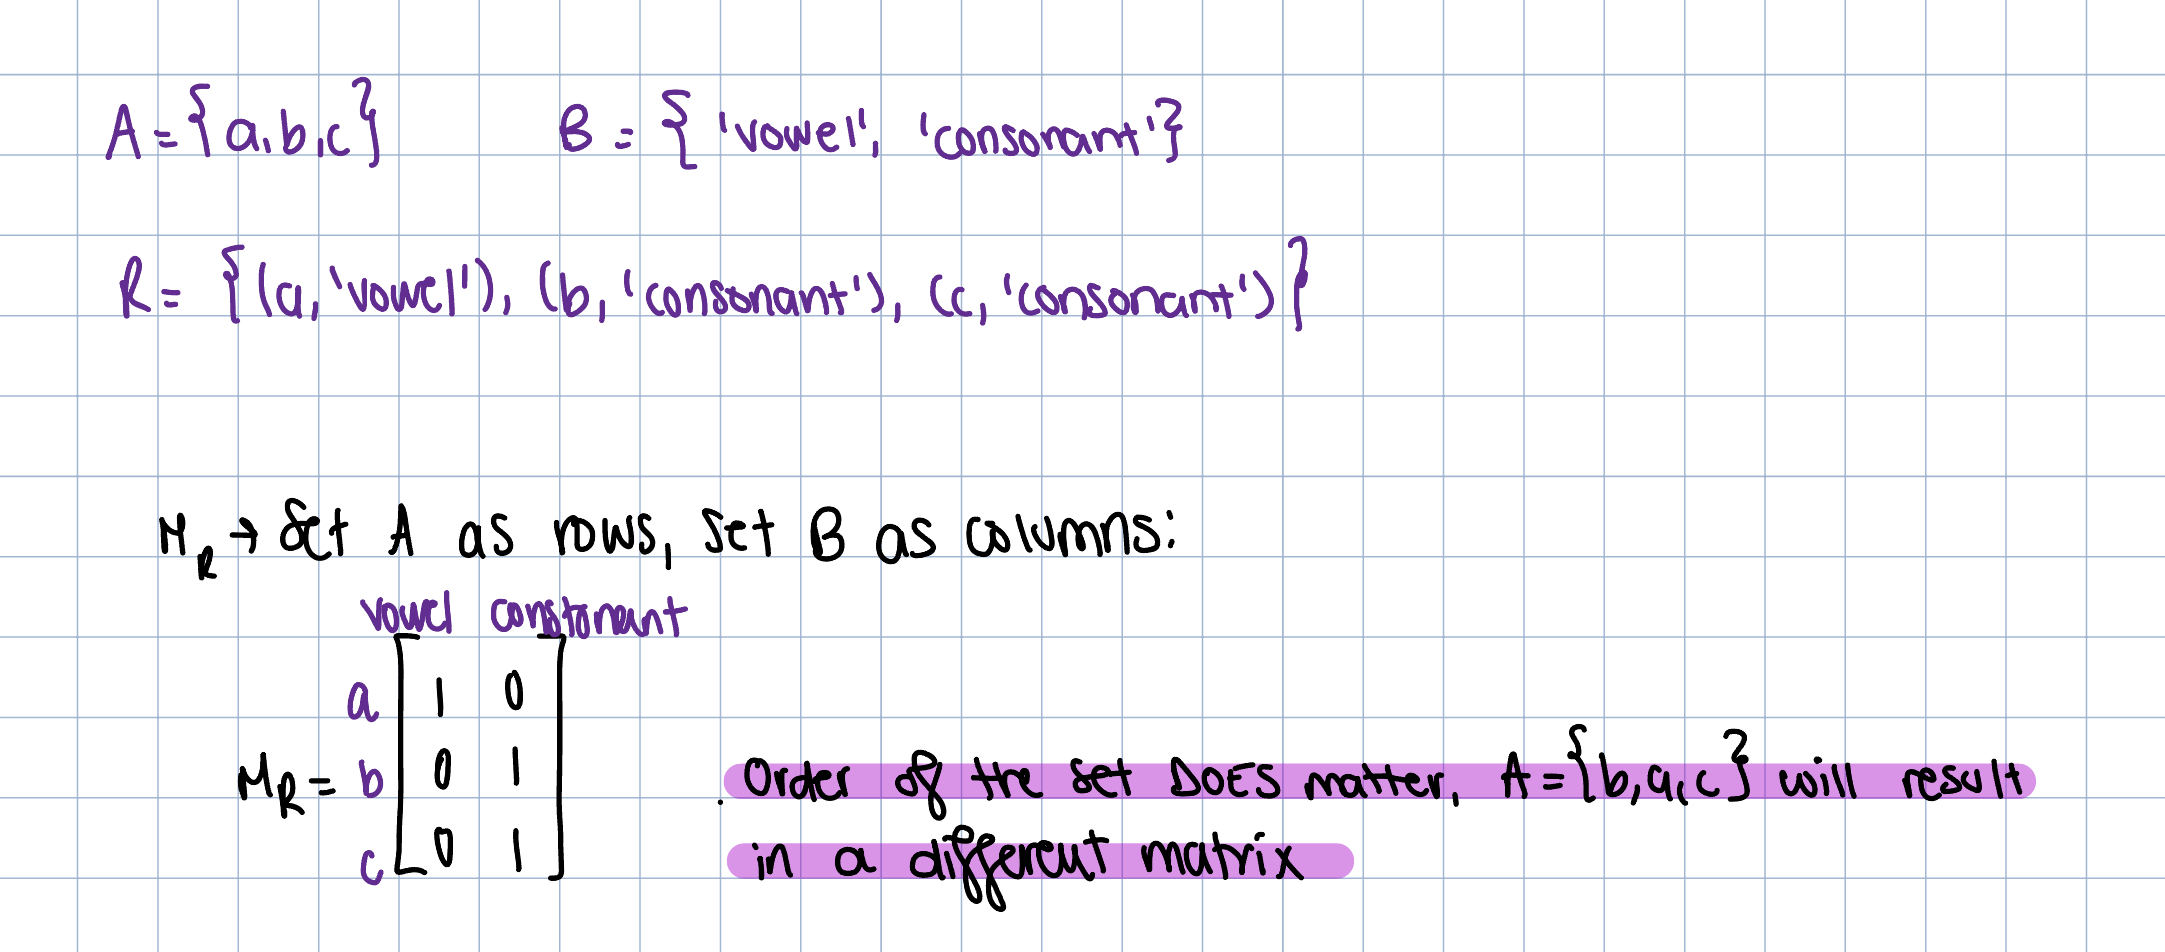 A={a,b,c} B = { 'vowel', 'consonant'}
R= {(a, 'vowel'), (b, 'consonant'), (c, 'consonant')}
M_R → Set A as rows, set B as columns:
vowel consonant
a [1 0]
M_R = b [0 1] . Order of the set DOES matter, A={b,a,c} will result
c [0 1] in a different matrix